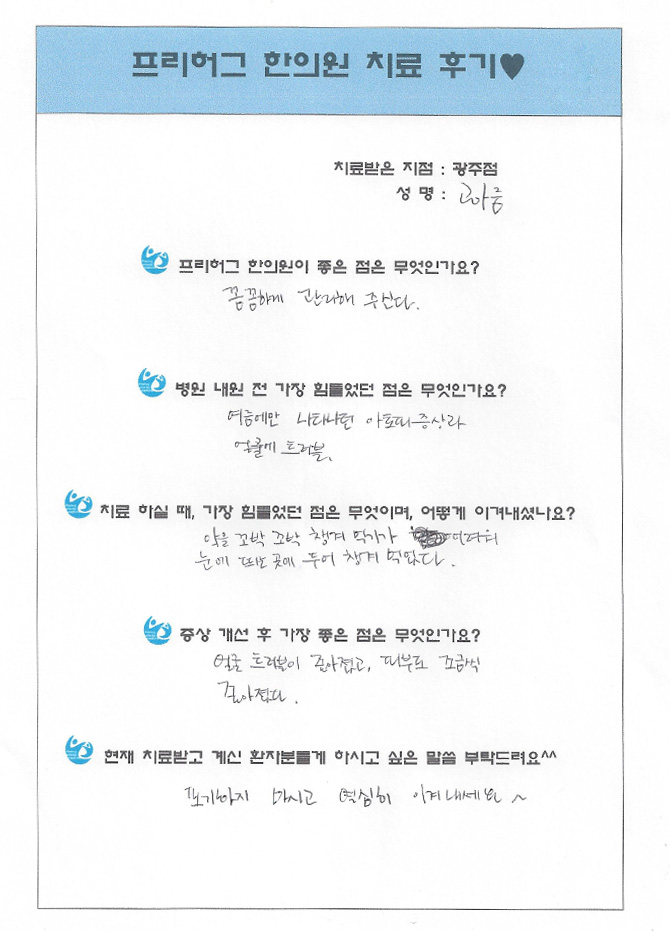 프리허그 한의원 치료 후기♥
치료받은 지점 : 광주점
성 명 : 고아름
프리허그 한의원이 좋은 점은 무엇인가요?
꼼꼼하게 관리해 주신다.
병원 내원 전 가장 힘들었던 점은 무엇인가요?
여름에만 나타나던 아토피증상과
얼굴에 트러블.
치료 하실 때, 가장 힘들었던 점은 무엇이며, 어떻게 이겨내셨나요?
약을 꼬박 꼬박 챙겨 먹기가 어려워
눈에 띄는 곳에 두어 챙겨 먹었다.
증상 개선 후 가장 좋은 점은 무엇인가요?
얼굴 트러블이 줄어졌고, 피부도 조금씩
좋아졌다.
현재 치료받고 계신 환자분들게 하시고 싶은 말씀 부탁드려요^^
포기하지 마시고 열심히 이겨내세요 ~